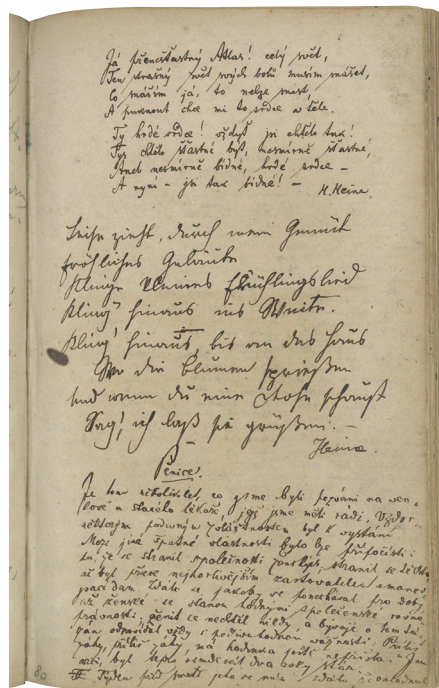 Já přenešťastný Atlas! celý svět,
Ten strašný svět svých bolů musím nášet,
Co snáším já, to nelze snést,
A puknout chce mi to srdce v těle.
Ty hrdé srdce! vždyť jsi chtělo tak!
Tys chtělo šťastné být, nesmírně šťastné,
Aneb nesmírně bídné, hrdé srdce –
A nyní – jsi tak bídné! –
H. Heine.
Leise zieht, durch mein Gemüth
fröhliches Geläute
Klinge kleines Frühlingslied
Kling' hinaus ins Weite.
Kling' hinaus bis an das Haus
Wo die Blumen sprießen
Und wenn du eine Rose schaust
Sag', ich laß sie grüßen. –
Heine.
Penice.
Je tomu několik let, co jsme byli pozváni na ven-
kov u starého lékaře, jejž jsme měli rádi, vzdor
některým podivným zvláštnostem byl k vystání
Mezi jiné špatné vlastnosti bylo lze přičísti:
že se stranil společnosti ženských, stranil se
ač byl přece nejhorlivějším zastovatelem emanci
paci dam
až ženské se stanou hodnými společenské rovno
právnosti, ženit se nechtěl nikdy a bývaje o tom
gán odpovídal vždy s podivuhodnou vážností:
záhy, příliš záhy, má hodinka ještě nepřišla.
byl teprv osmdesát dva roky stár.
Týden před svatbou
80